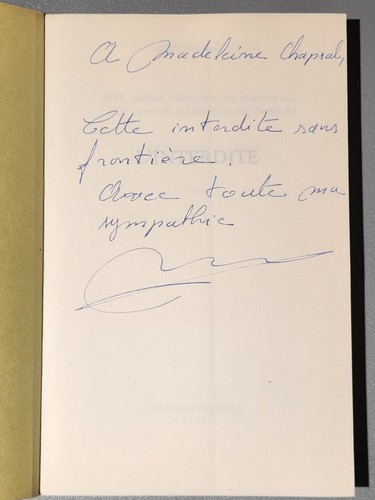 A Madeleine Chapsal,
Cette interdite sans
frontière.
Avec toute ma
sympathie